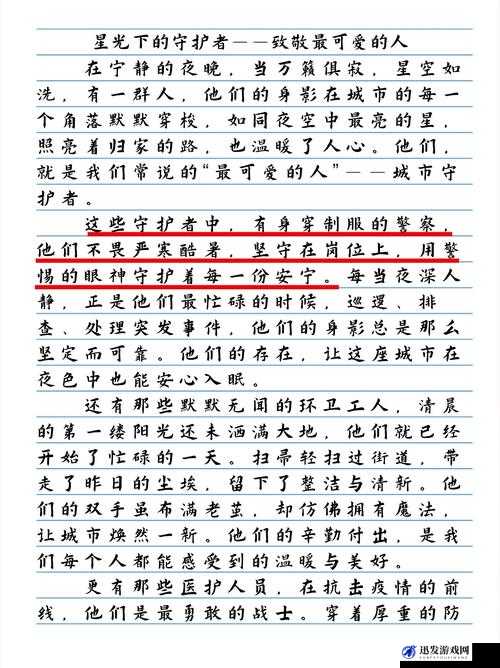 星光下的守护者——致敬最可爱的人
在宁静的夜晚，当万籁俱寂，星空如
洗，有一群人，他们的身影在城市的每一
个角落默默穿梭，如同夜空中最亮的星，
照亮着归家的路，也温暖了人心。他们，
就是我们常说的“最可爱的人”——城市守
护者。
这些守护者中，有身穿制服的警察，
他们不畏严寒酷暑，坚守在岗位上，用警
惕的眼神守护着每一份安宁。每当夜深人
静，正是他们最忙碌的时候，巡逻、排
查、处理突发事件，他们的身影总是那么
坚定而可靠。他们的存在，让这座城市在
夜色中也能安心入眠。
还有那些默默无闻的环卫工人，清晨
的第一缕阳光还未洒满大地，他们就已经
开始了忙碌的一天。扫帚轻扫过街道，带
走了昨日的尘埃，留下了整洁与清新。他
们的双手虽布满老茧，却仿佛拥有魔法，
让城市焕然一新。他们的辛勤付出，是我
们每个人都能感受到的温暖与美好。
更有那些医护人员，在抗击疫情的前
线，他们是最勇敢的战士。穿着厚重的防
迅发游戏网